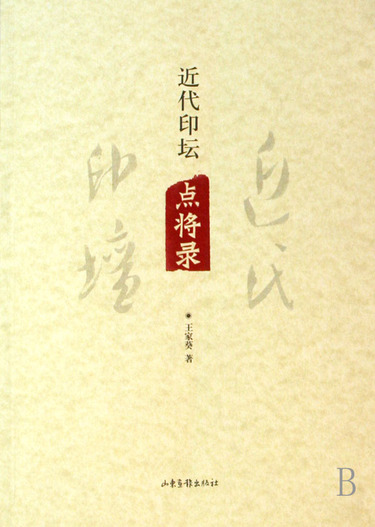 近代印坛
点将录
近代
印壇
王家葵 著
山东画报出版社
B